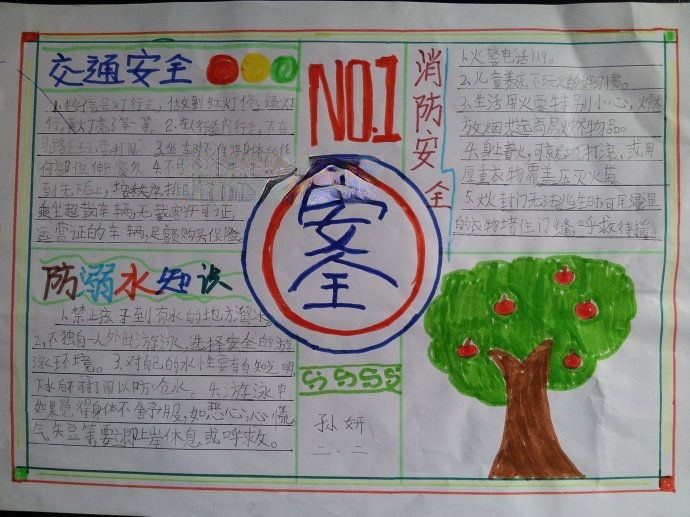 交通安全
1.按信号灯行走,做到红灯停,绿灯
行,黄灯亮了等一等。2.在人行道内行走,不在
马路上玩耍
3.坐车时不伸身体的任
何部位伸出窗外 4.不
到先下后上,按秩序排
乘坐超载车辆,无载客许可证,
运营证的车辆,足额购买保险。
防溺水知识
1.禁止孩子到有水的地方溜冰。
2.不独自一人外出游泳,选择安全的游
泳环境。3.对自己的水性要有自知之明
下水
4.游泳中
如果觉得身体不舍予服,如恶心,心慌
气矢豆等要立即上岸休息或呼救。
NO.1
安全
SSSSS
孙妍
二、二
消防安全
1.火警电话119。
2.儿童养成不玩火的好习惯。
3.生活用火要特别小心,火旁
放
易燃物品。
4.身上着火,
就地打滚,或用
厚重衣物覆盖压灭火苗
5.大火封门无法逃生时可用浸湿
的衣物堵住门缝,呼救待援。